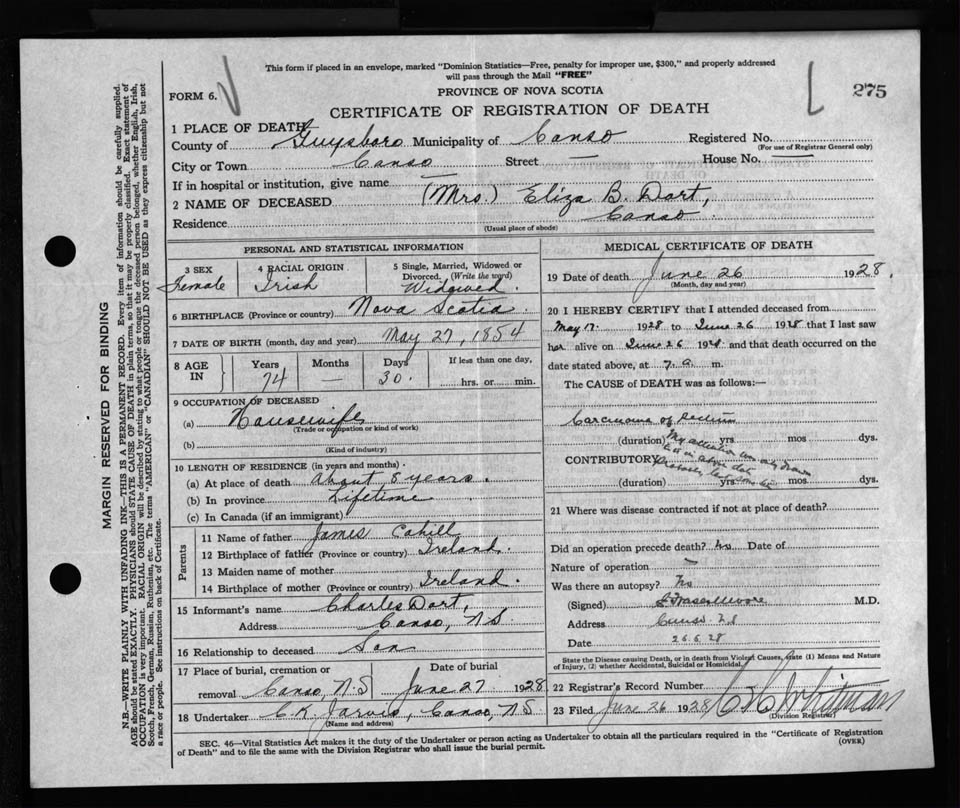 This form if placed in an envelope, marked "Dominion Statistics—Free, penalty for improper use, $300," and properly addressed
will pass through the Mail "FREE"
FORM 6.
PROVINCE OF NOVA SCOTIA
275
CERTIFICATE OF REGISTRATION OF DEATH
1 PLACE OF DEATH
County of Guysboro Municipality of Canso Registered No.
(For use of Registrar General only)
City or Town Canso Street — House No. —
If in hospital or institution, give name —
2 NAME OF DECEASED (Mrs.) Eliza B. Dort,
Residence Canso.
(Usual place of abode)
PERSONAL AND STATISTICAL INFORMATION
3 SEX
Female
4 RACIAL ORIGIN
Irish
5 Single, Married, Widowed or
Divorced. (Write the word)
Widowed.
6 BIRTHPLACE (Province or country) Nova Scotia.
7 DATE OF BIRTH (month, day and year) May 27, 1854
8 AGE IN
Years
74
Months
—
Days
30.
If less than one day,
hrs. or min.
9 OCCUPATION OF DECEASED
(a) Housewife
(Trade or occupation or kind of work)
(b)
(Kind of industry)
10 LENGTH OF RESIDENCE (in years and months)
(a) At place of death About 8 years.
(b) In province Lifetime
(c) In Canada (if an immigrant)
Parents
11 Name of father James Cahill
12 Birthplace of father (Province or country) Ireland.
13 Maiden name of mother
14 Birthplace of mother (Province or country) Ireland.
15 Informant's name Charles Dort,
Address Canso, N.S.
16 Relationship to deceased Son
17 Place of burial, cremation or
removal Canso, N.S
Date of burial
June 27 1928
18 Undertaker C.K. Jarvis, Canso, N.S
(Name and address)
MEDICAL CERTIFICATE OF DEATH
19 Date of death June 26 1928.
(Month, day and year)
20 I HEREBY CERTIFY that I attended deceased from
May 17. 1928 to June 26 1928 that I last saw
her alive on June 26 1928 and that death occurred on the
date stated above, at 7 a m.
The CAUSE of DEATH was as follows:—
Carcinoma of Rectum
(duration) yrs mos dys.
My attention was only drawn
to it in above date
CONTRIBUTORY
Probably
(duration) yrs mos dys.
21 Where was disease contracted if not at place of death?
Did an operation precede death? no Date of
Nature of operation —
Was there an autopsy? No
(Signed) Moore M.D.
Address Canso N.S
Date 26.6.28
State the Disease causing Death, or in death from Violent Causes, state (1) Means and Nature
of Injury, (2) whether Accidental, Suicidal or Homicidal.
22 Registrar's Record Number
23 Filed June 26 1928 Whitman
(Division Registrar)
SEC. 46—Vital Statistics Act makes it the duty of the Undertaker or person acting as Undertaker to obtain all the particulars required in the "Certificate of Registration
of Death" and to file the same with the Division Registrar who shall issue the burial permit.
(OVER)
MARGIN RESERVED FOR BINDING
N.B.—WRITE PLAINLY WITH UNFADING INK—THIS IS A PERMANENT RECORD. Every item of information should be carefully supplied.
AGE should be stated EXACTLY. PHYSICIANS should STATE CAUSE OF DEATH in plain terms, so that it may be properly classified. Exact statement of
OCCUPATION is very important. RACIAL ORIGIN will be described by stating to what people or tongue the deceased person belonged, whether English, Irish,
Scotch, French, German, Russian, Ruthenian, etc. The terms "AMERICAN" or "CANADIAN" SHOULD NOT BE USED as they express citizenship but not
a race or people. See instructions on back of Certificate.